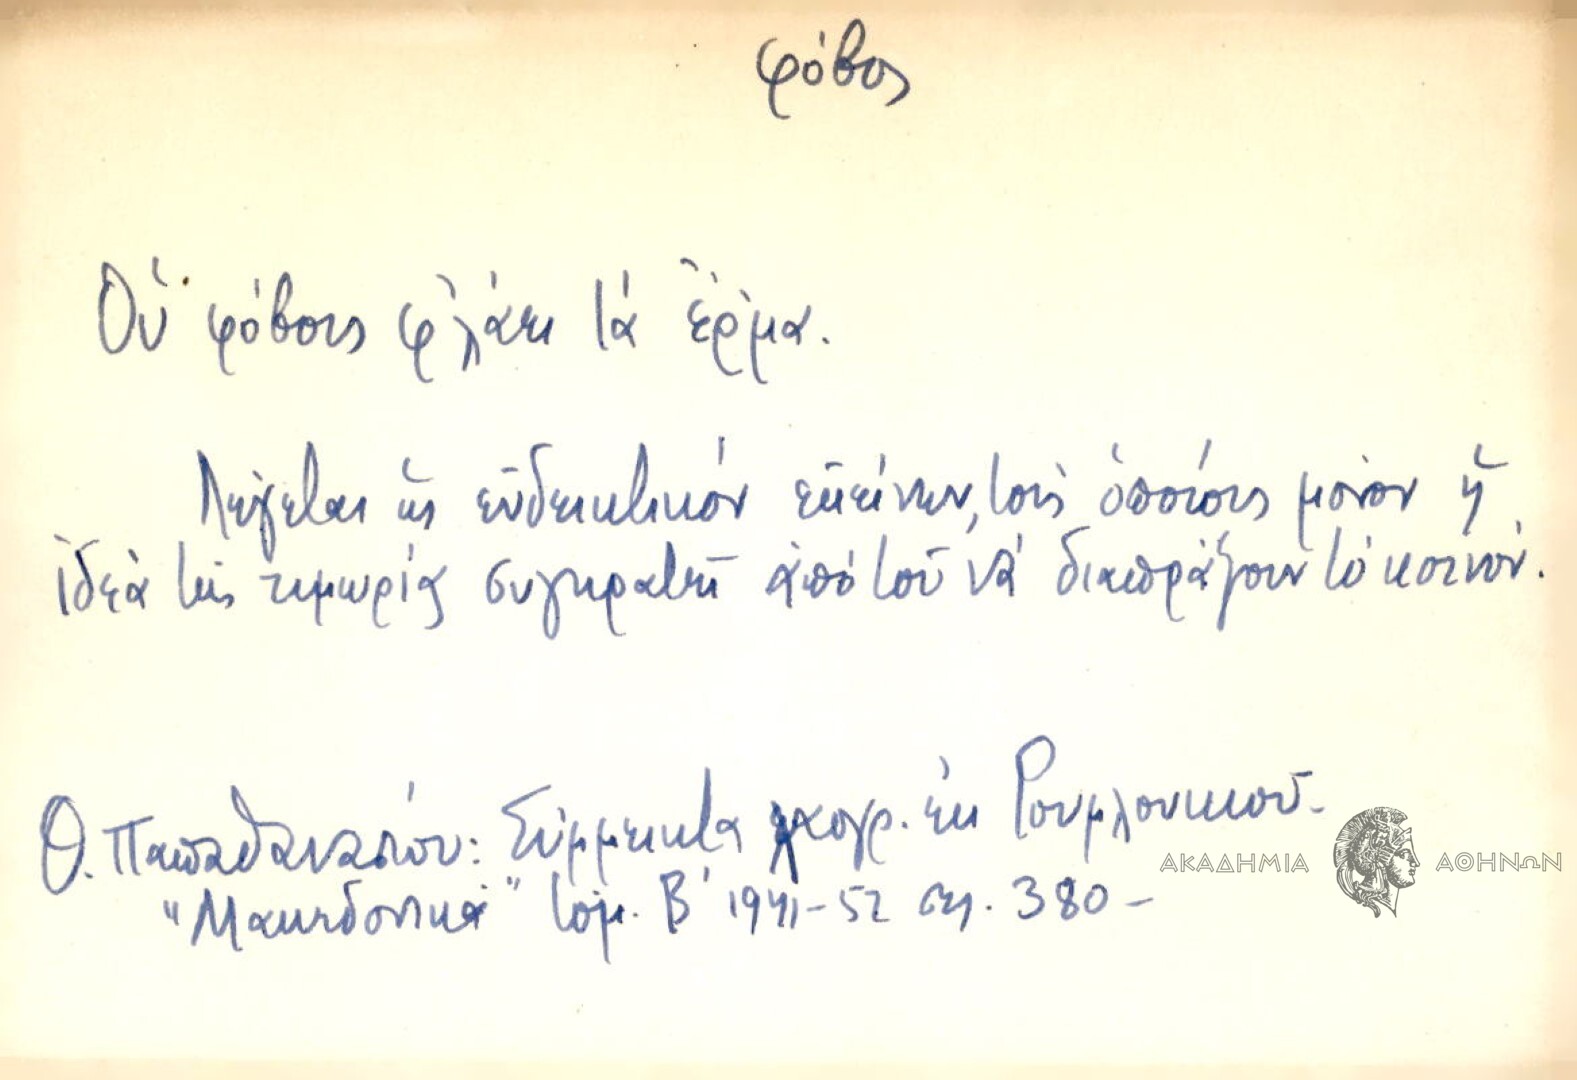 φόβος
Οὑ φόβους φ'λάει τά ἔρ'μα.
Λέγεται ὡς ἐνδεικτικόν ἐκείνων, τούς ὁποίους μόνον ἡ
ἰδέα τῆς τιμωρίας συγκρατεῖ ἀπό τοῦ νά διαπράξουν τό κοινόν.
Θ. Παπαθανασίου: Σύμμεικτα λαογρ. ἐκ Ρουμλουκιοῦ-
"Μακεδονικά" τόμ. Β' 1941-52 σελ. 380 -
ΑΚΑΔΗΜΙΑ ΑΘΗΝΩΝ